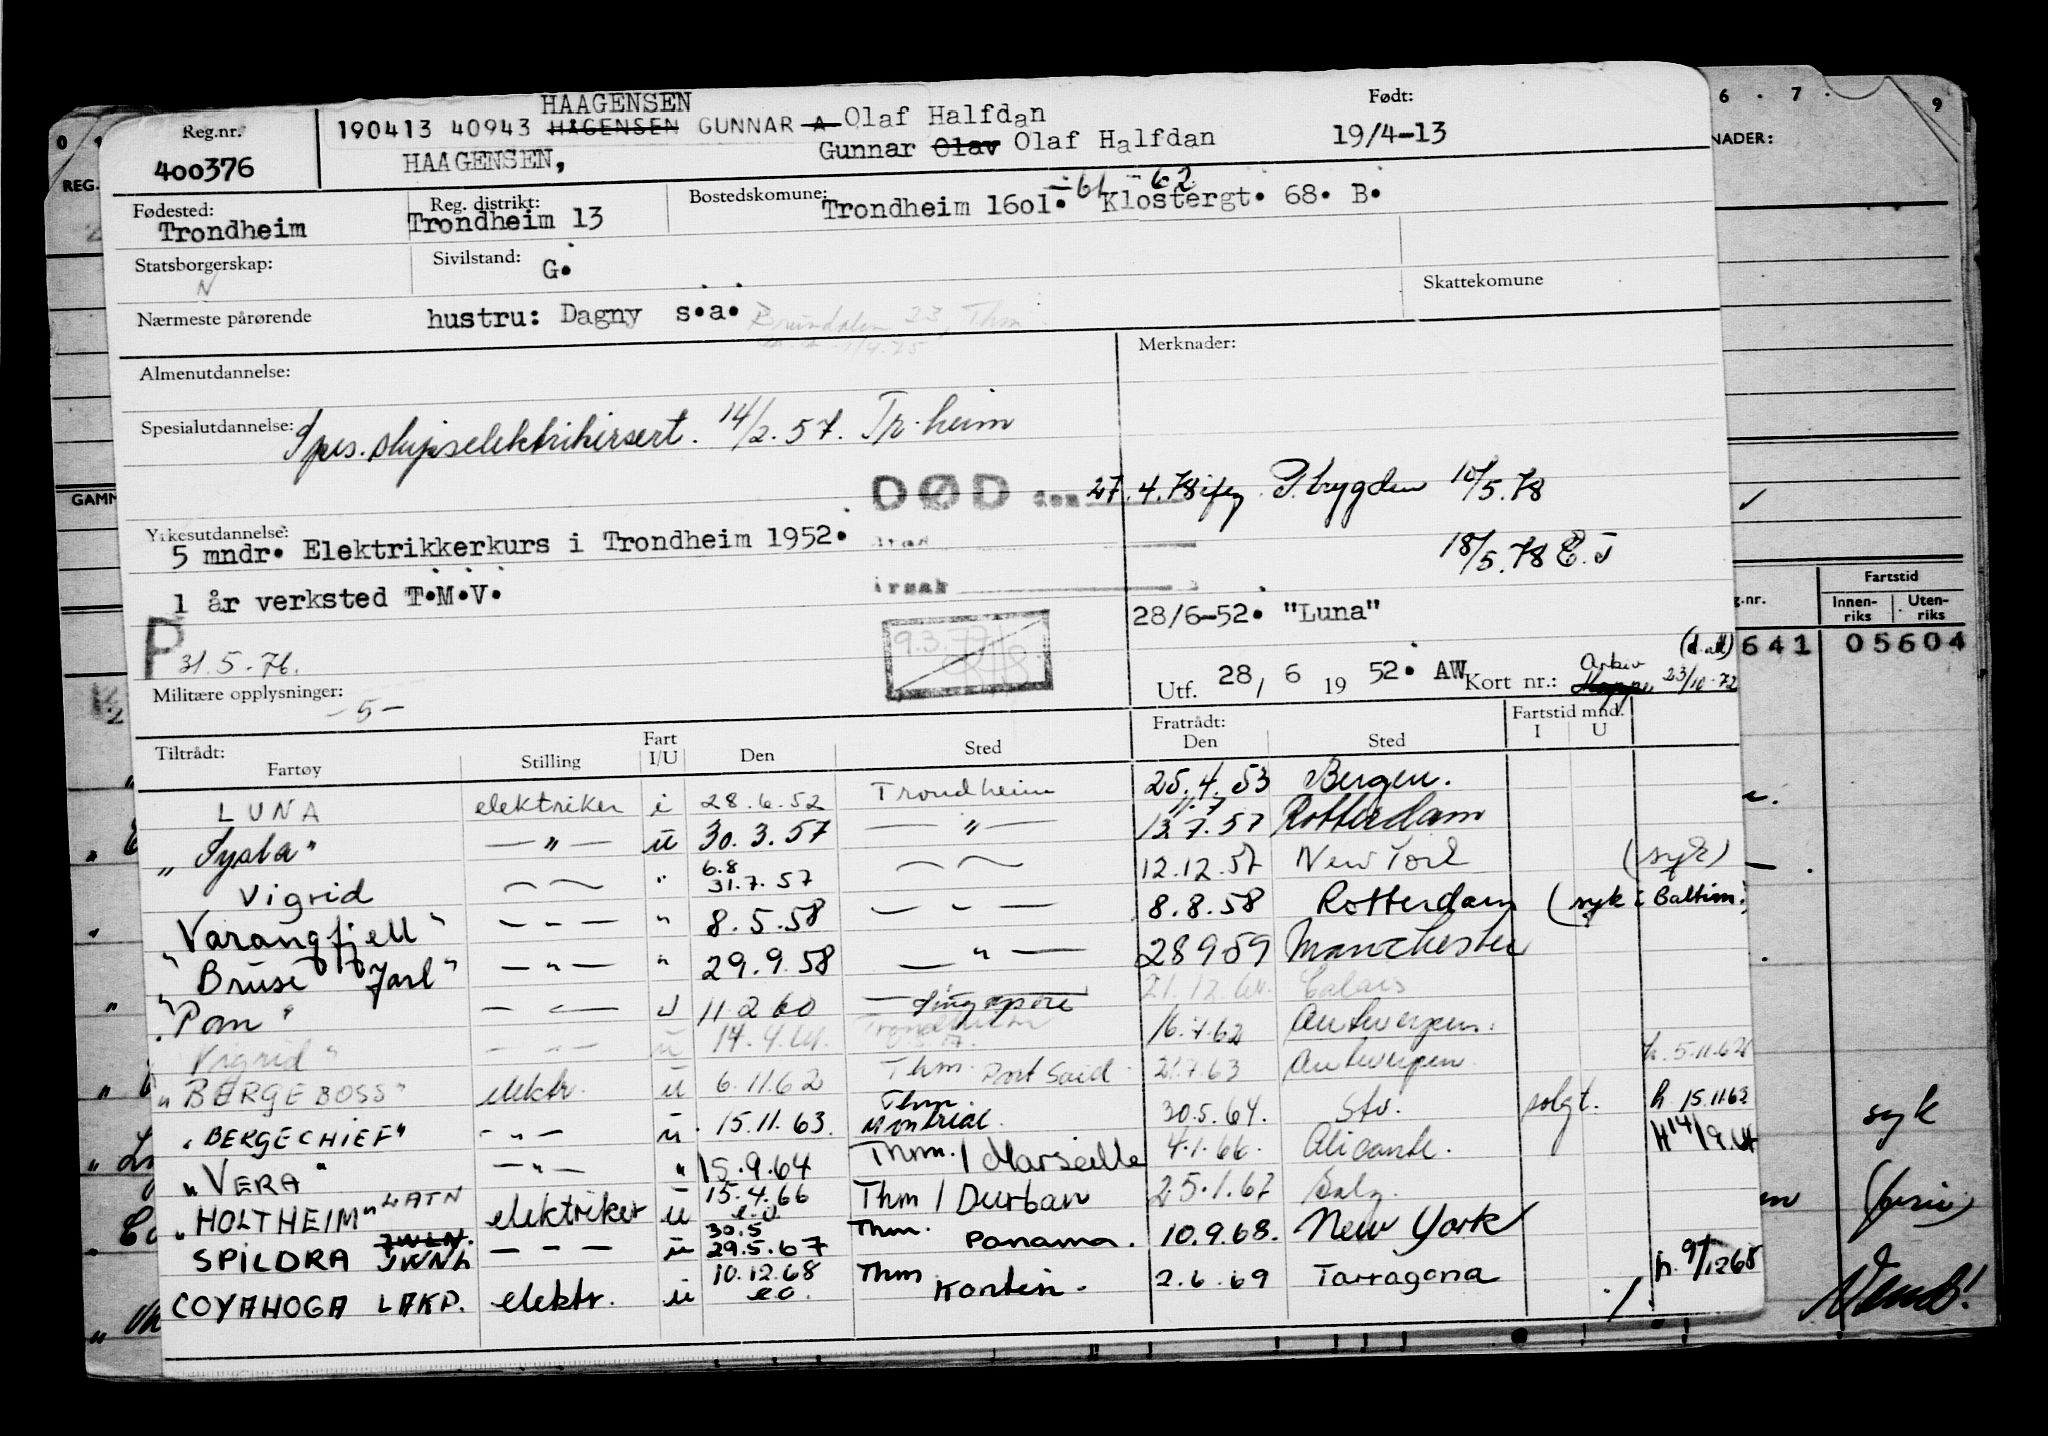 HAAGENSEN
Reg.nr. 190413 40943 HAGENSEN GUNNAR A Olaf Halfdan Født:
400376 HAAGENSEN, Gunnar Olav Olaf Halfdan 19/4-13
Fødested: Trondheim Reg. distrikt: Trondheim 13 Bostedskomune: Trondheim 1601. -61 -62 Klostergt. 68. B.
Statsborgerskap: N Sivilstand: G. Skattekomune
Nærmeste pårørende hustru: Dagny s.a. Brundalen 23, Thm
Almenutdannelse: Merknader:
Spesialutdannelse: Spes. skipselektrikersert. 14/2.57. Tr.heim
DØD den 27.4.78 10/5.78
Yrkesutdannelse: 5 mndr. Elektrikkerkurs i Trondheim 1952.
18/5.78 E.J
1 år verksted T.M.V. årsak
28/6-52. "Luna"
P 31.5.76. 9.3.77
Utf. 28, 6 19 52. AW Kort nr.: Arkiv Mappe 23/10-72
Militære opplysninger: -5-
Tiltrådt: Fartøy Stilling Fart I/U Den Sted Fratrådt: Den Sted Fartstid mnd. I U
LUNA elektriker i 28.6.52 Trondheim 25.4.53 Bergen.
"Sysla" — " — u 30.3.57 — " — 11.7 12.7.57 Rotterdam
Vigrid " 6.8 31.7.57 12.12.57 New York (syk)
"Varangfjell" - - - " 8.5.58 — " — 8.8.58 Rotterdam (syk i Baltim.)
"Bruse Jarl" — " — " 29.9.58 — " — 28 9 59 Manchester
"Pan" - - - U 11.2.60 Singapore 21.12.64. Calais
Vigrid" - - - u 14.4.64. Trondheim 16.7.62 Antwerpen.
"BERGEBOSS" elektr. u 6.11.62 Thm. Port Said 21.7.63 Antwerpen. h. 5.11.62
"BERGECHIEF" - " - u 15.11.63. Thm. Montreal 30.5.64. Stv. solgt. h 15.11.63
"VERA" — " — " 15.9.64 Thm. / Marseille 4.1.66. Alicante. H 14/9.64
"HOLTHEIM" LATN elektriker u 15.4.66 e.o Thm / Durban 25.1.67 Salg.
SPILDRA JWLN. JWNL - - - u 30.5 29.5.67 Thm. Panama. 10.9.68. New York
COYAHOGA LAKP. elektr. u 10.12.68 e.o. Thm 2.6.69 Tarragona h. 9/12 68
6 . 7 . 9
NADER:
REG.
GAMM
g.nr. Fartstid
Innen-riks Uten-riks
641 05604
syk